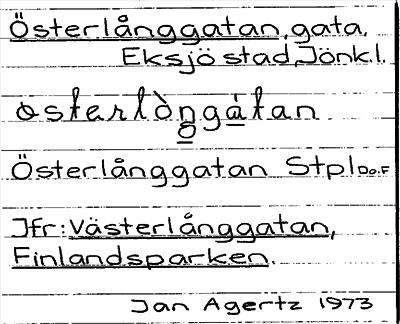 Österlånggatan, gata,
Eksjö stad, Jönk.l.
ɷsterlòŋgàtan
Österlånggatan Stpl D o. F
Jfr: Västerlånggatan,
Finlandsparken.
Jan Agertz 1973